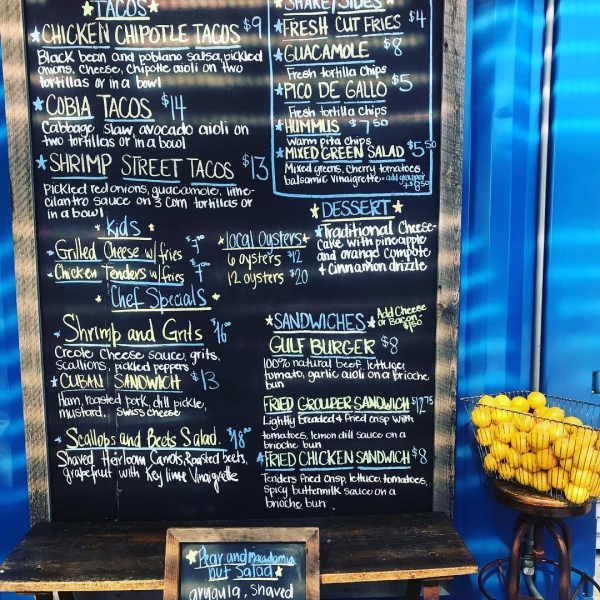 TACOS
CHICKEN CHIPOTLE TACOS $9
Black bean and poblano salsa, pickled
onions, cheese, Chipotle aioli on two
tortillas or in a bowl
COBIA TACOS $14
Cabbage slaw, avocado aioli on
two tortillas or in a bowl
SHRIMP STREET TACOS $13
Pickled red onions, guacamole, lime-
cilantro sauce on 3 corn tortillas or
in a bowl
Kids
Grilled Cheese w/ fries
Chicken Tenders w/ fries
local Oysters
6 oysters $12
12 oysters $20
Chef Specials
Shrimp and Grits $16
Creole Cheese sauce, grits,
scallions, pickled peppers
CUBAN SANDWICH $13
Ham, roasted pork, dill pickle,
mustard, swiss cheese
Scallops and Beets Salad $18
Shaved Heirloom Carrots, Roasted beets,
grapefruit with Key lime Vinaigrette
SHARE/SIDES
FRESH CUT FRIES $4
GUACAMOLE $8
Fresh tortilla chips
PICO DE GALLO $5
Fresh tortilla chips
HUMMUS $7 50
Warm pita chips
MIXED GREEN SALAD $5 50
Mixed greens, cherry tomatoes
balsamic vinaigrette - add grouper
DESSERT
Traditional Cheese-
cake with pineapple
and orange compote
& cinnamon drizzle
SANDWICHES Add Cheese
or Bacon
GULF BURGER $8
100% natural beef, lettuce,
tomato, garlic aioli on a brioche
bun
FRIED GROUPER SANDWICH $12.75
Lightly breaded & fried crisp with
tomatoes, lemon dill sauce on a
brioche bun
FRIED CHICKEN SANDWICH $8
Tenders fried crisp, lettuce, tomatoes,
spicy buttermilk sauce on a
brioche bun
Pear and Macadamia
nut Salad
arugula, shaved